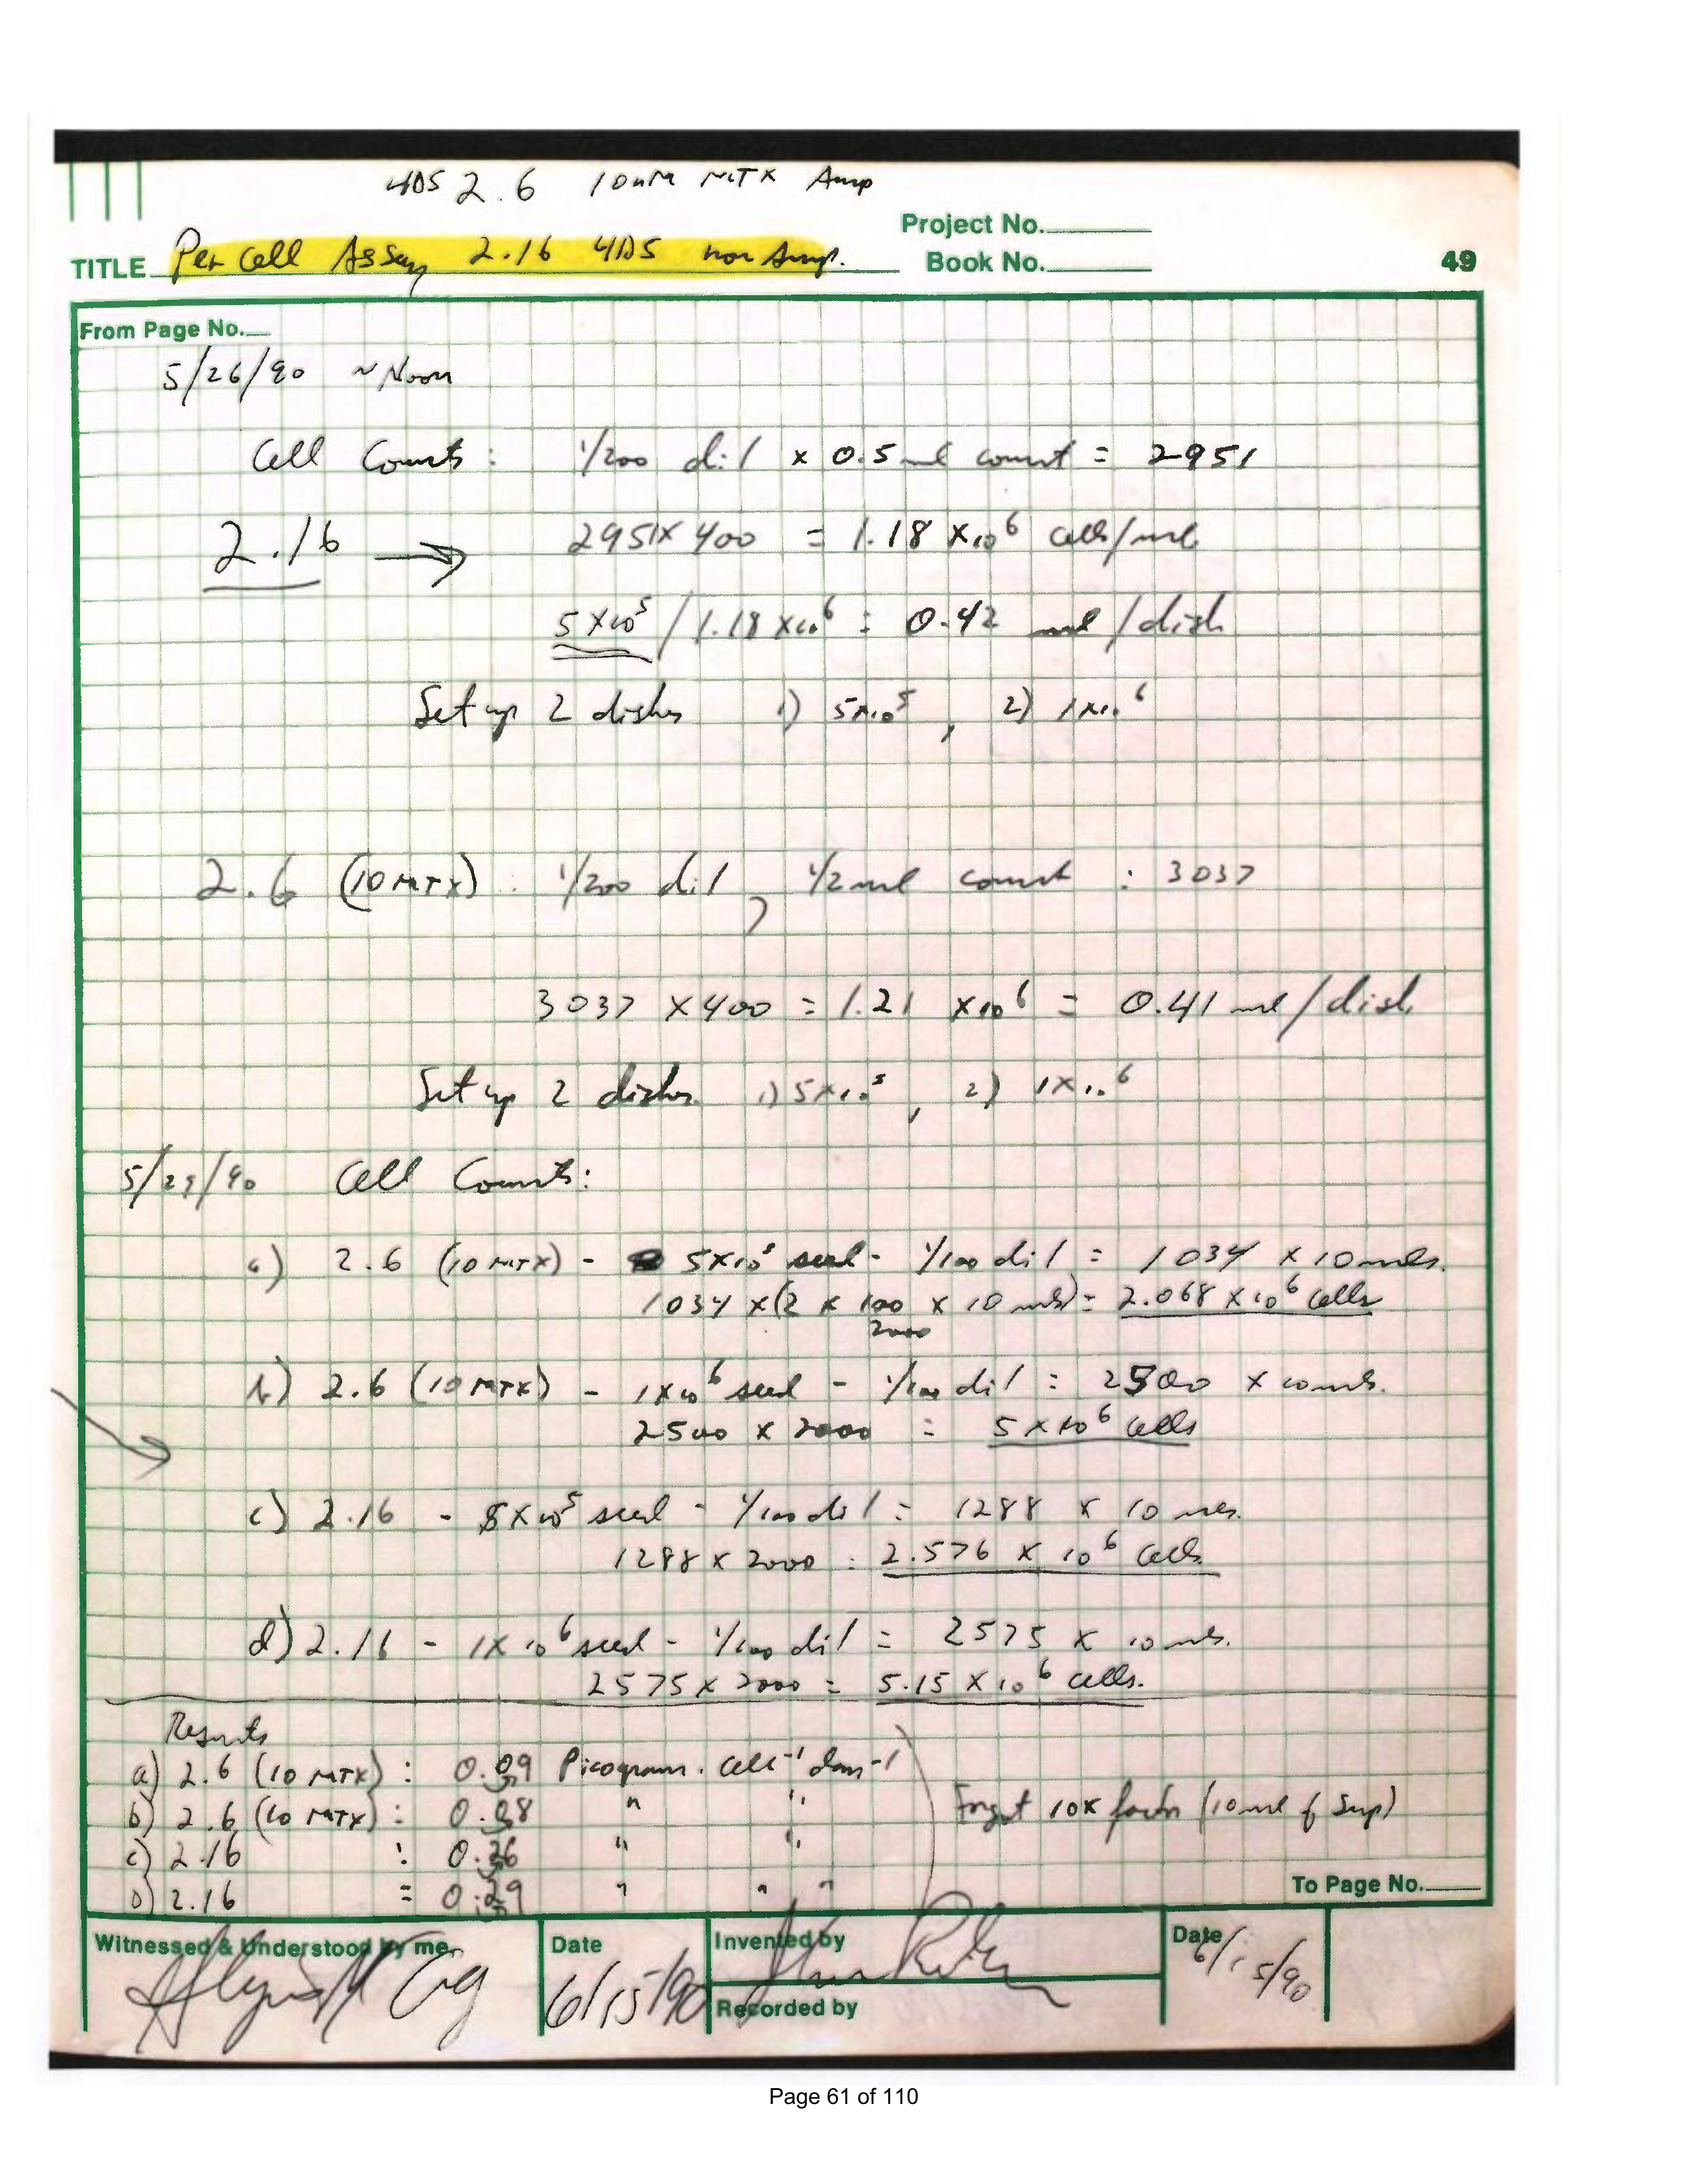 4DS 2.6 10nM MTX Amp
Project No.
TITLE Per Cell Assay 2.16 4DS non Amp.
Book No.
49
From Page No.
5/26/90 ~Noon
Cell Counts: 1/200 dil x 0.5 ml count = 2951
2.16 → 2951 x 400 = 1.18 x10⁶ cells/ml
5 x10⁵ / 1.18 x10⁶ = 0.42 ml/dish
Set up 2 dishes 1) 5x10⁵, 2) 1x10⁶
2.6 (10 MTX) : 1/200 dil, 1/2 ml count : 3037
3037 x 400 = 1.21 x10⁶ = 0.41 ml/dish
Set up 2 dishes 1) 5x10⁵, 2) 1x10⁶
5/29/90 Cell Counts:
a) 2.6 (10 MTX) - 5x10⁵ seed - 1/100 dil = 1034 x 10 mls.
1034 x (2 x 100 x 10 mls) = 2.068 x 10⁶ cells
2000
b) 2.6 (10 MTX) - 1x10⁶ seed - 1/100 dil = 2500 x 10 mls.
2500 x 2000 = 5 x 10⁶ cells
c) 2.16 - 5x10⁵ seed - 1/100 dil = 1288 x 10 mls.
1288 x 2000 = 2.576 x 10⁶ cells
d) 2.16 - 1x10⁶ seed - 1/100 dil = 2575 x 10 mls.
2575 x 2000 = 5.15 x 10⁶ cells.
Results
a) 2.6 (10 MTX) : 0.09 Picogram. cell⁻¹ day⁻¹
b) 2.6 (10 MTX) : 0.08 " "
Forgot 10x factor (10 ml of Sup)
c) 2.16 : 0.36 " "
d) 2.16 = 0.29 " " "
To Page No.
Witnessed & Understood by me,
Date
Invented by
Date
6/15/90
6/15/90
Recorded by
Page 61 of 110